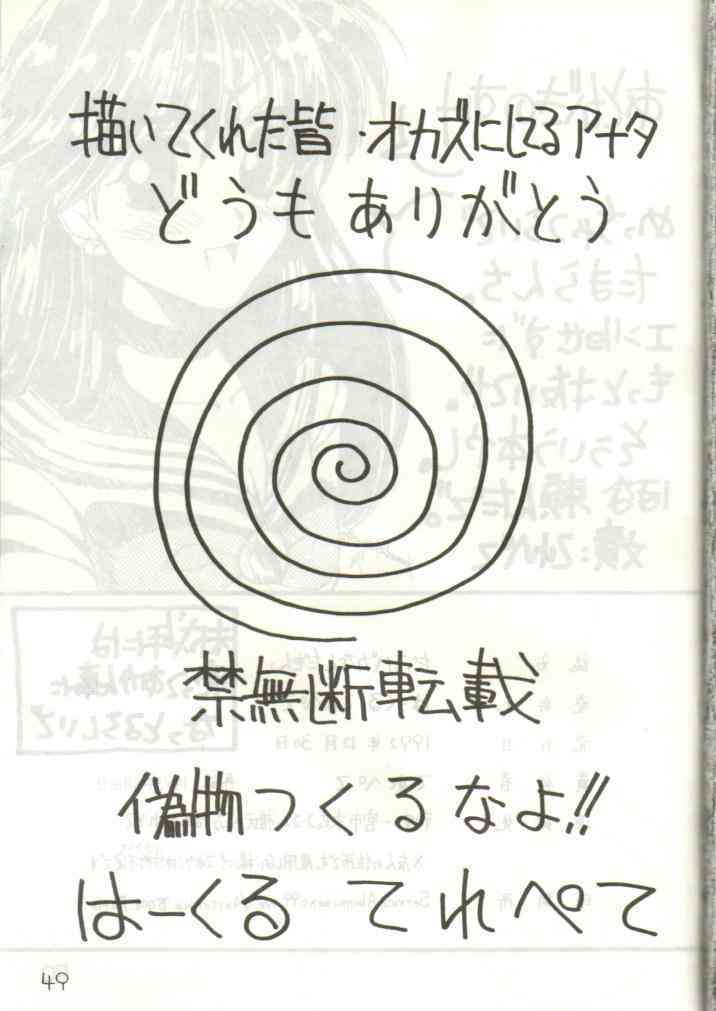 描いてくれた皆・オカズにしてるアナタ
どうも ありがとう
禁無断転載
偽物つくるなよ!!
はーくる てれぺて
49